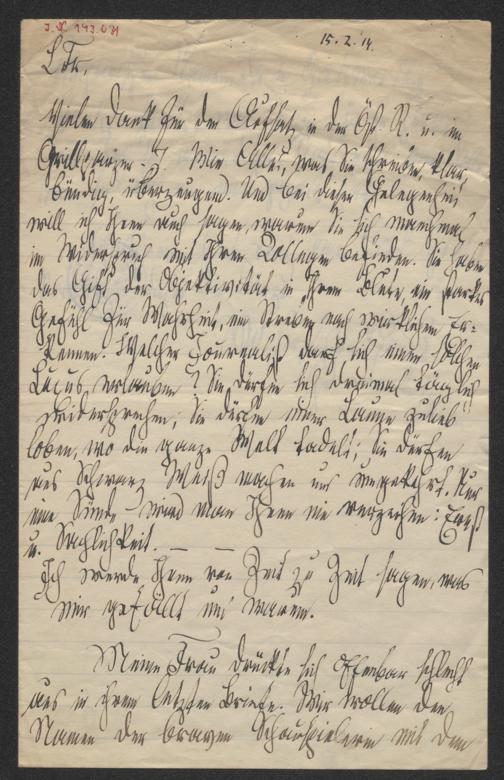 J.N. 193.081
15. 2. 14.
L. Fr.
Vielen Dank für den Aufsatz in der Öst. R. u. im
Grillparzer-J. Wie Alles, was Sie schreiben, klar,
bündig, überzeugend. Und bei dieser Gelegenheit
will ich Ihnen auch sagen, warum Sie sich manchmal
im Widerspruch mit Ihren Collegen befinden. Sie haben
das Gift der Objektivität in Ihrem Blute, ein starkes
Gefühl für Wahrheit, ein Streben nach wirklichem Er-
kennen. Welcher Journalist darf sich einen solchen
Luxus erlauben? Sie dürfen sich dreimal täglich
widersprechen, Sie dürfen einer Laune zulieb
loben, wo die ganze Welt tadelt; Sie dürfen
aus Schwarz Weiß machen und umgekehrt. Nur
eine Sünde wird man Ihnen nie verzeihen: Ernst
u. Sachlichkeit. — —
Ich werde Ihnen von Zeit zu Zeit sagen, was
mir gefällt und warum.
Meine Frau drückte sich offenbar schlecht
aus in ihrem letzten Briefe. Wir wollen den
Namen der braven Schauspielerin mit dem